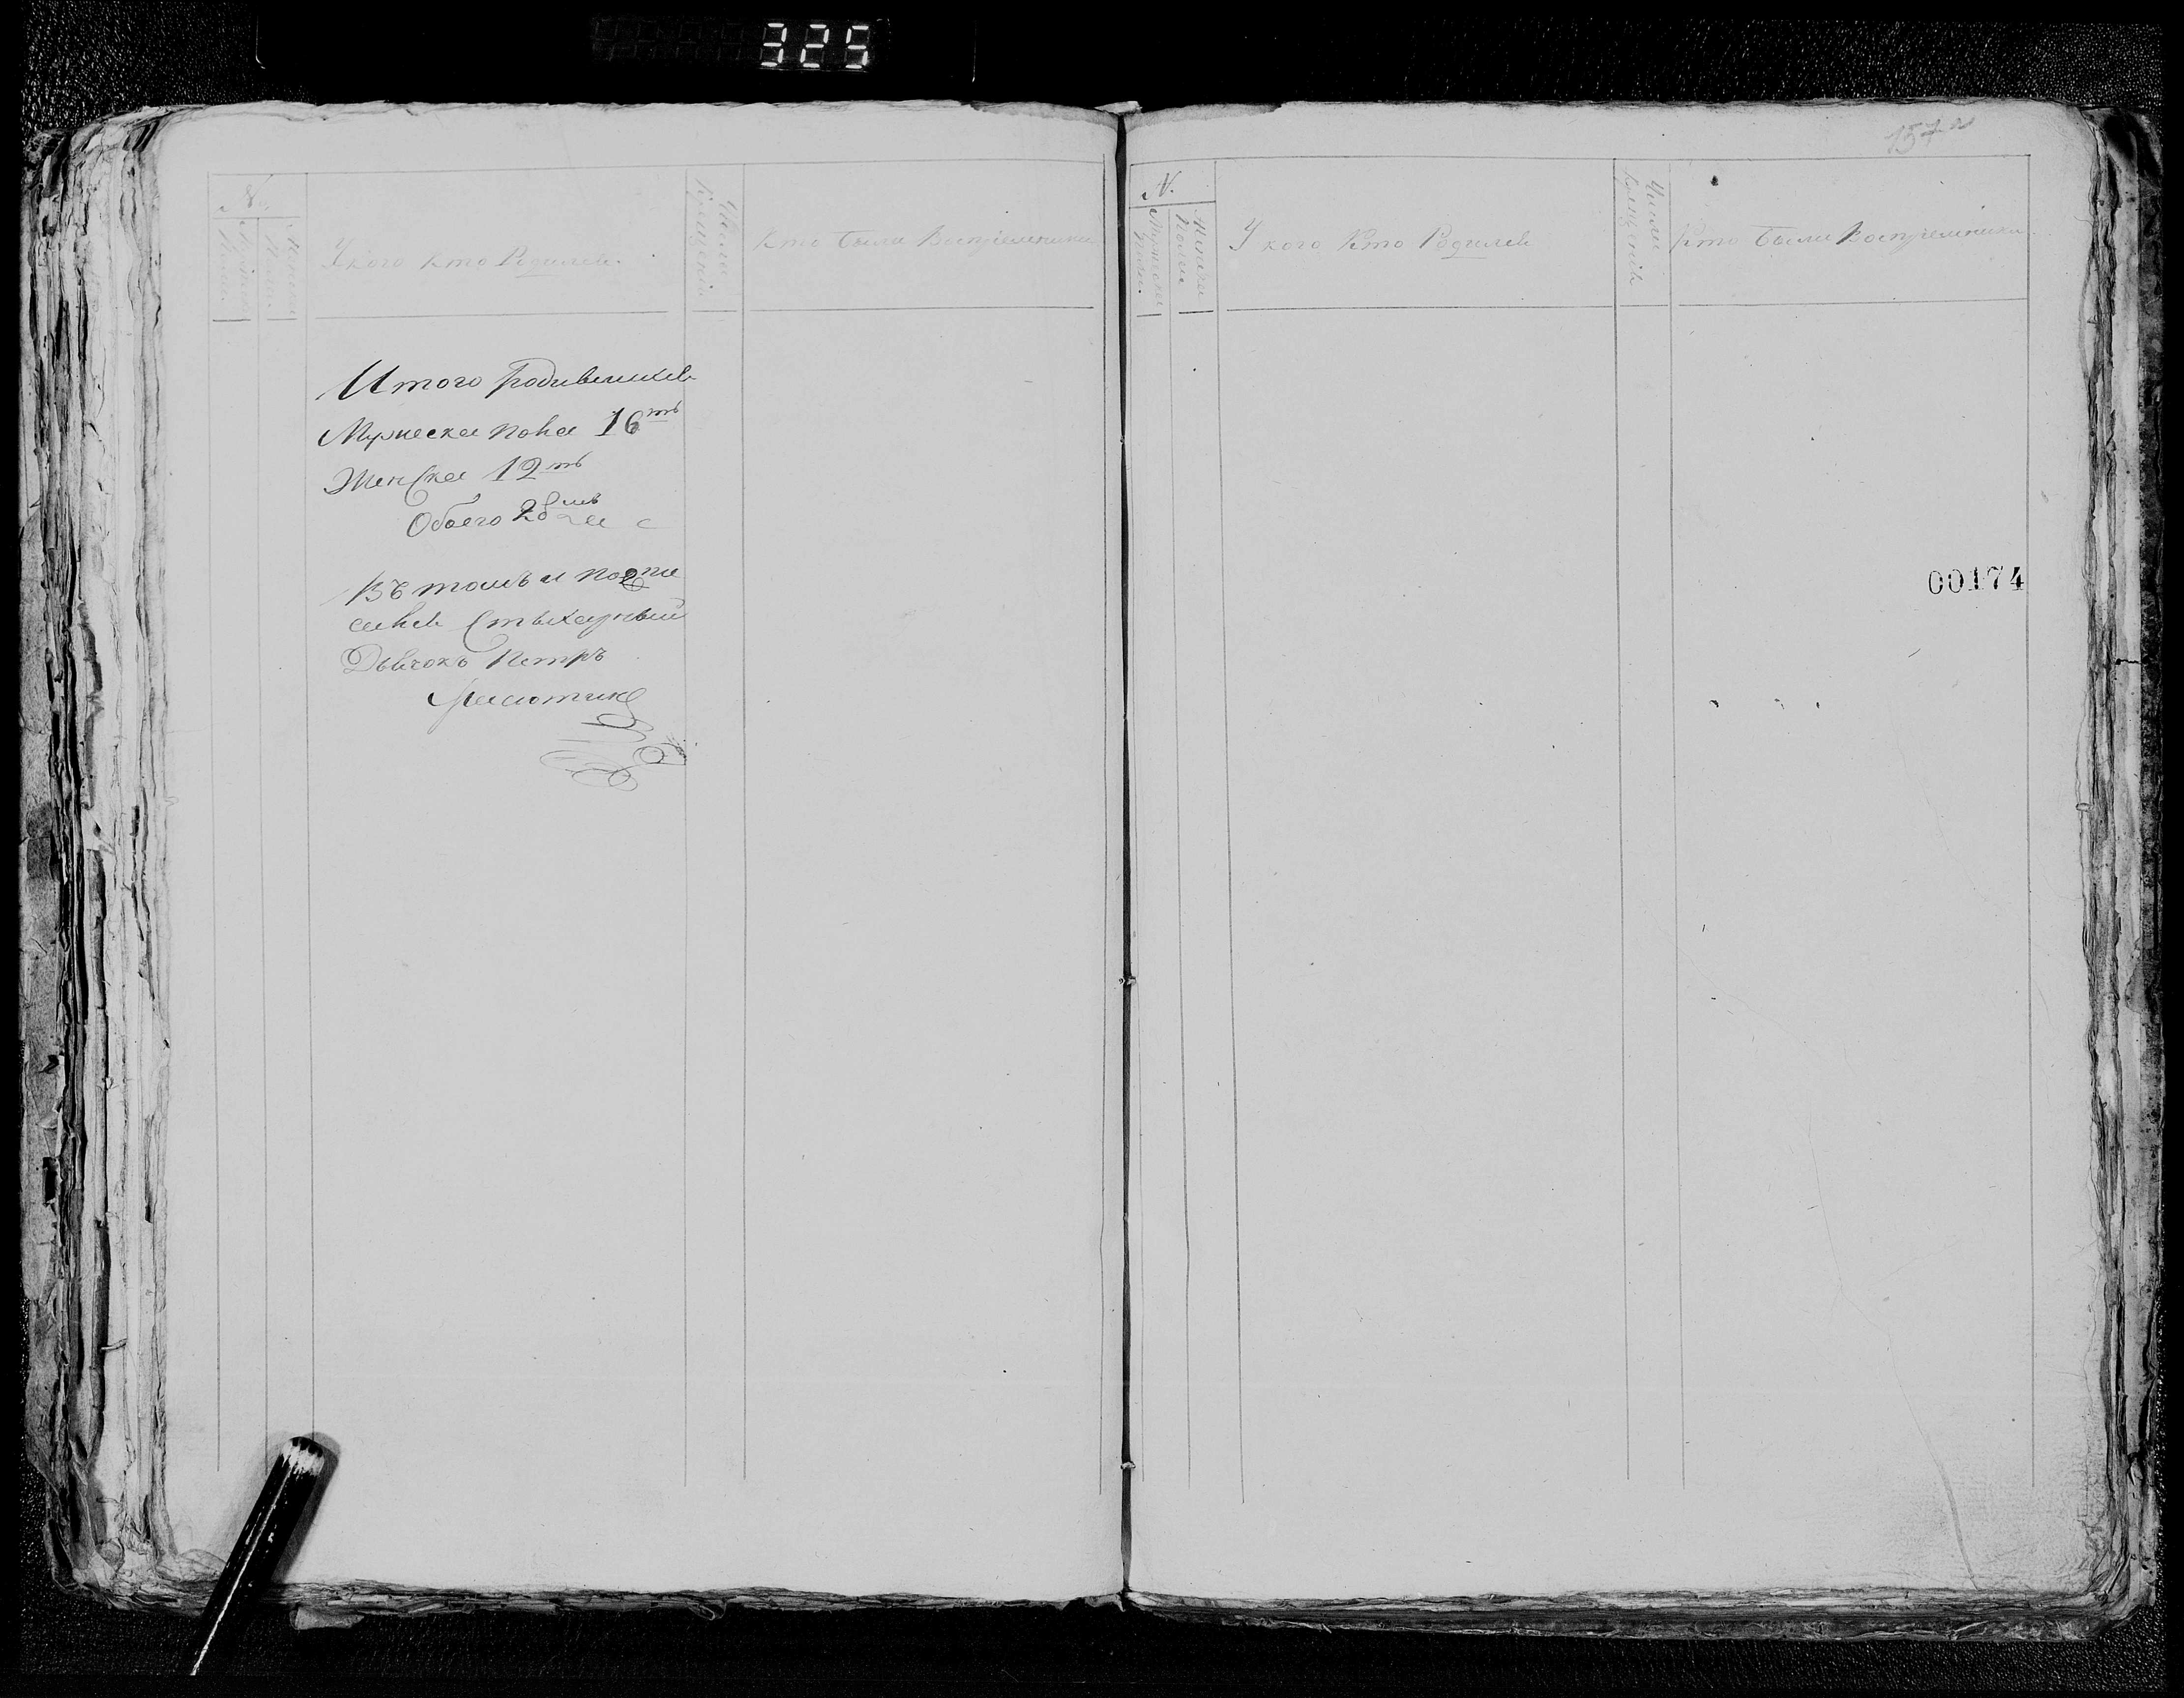 325
157а
№.
Мужска Пола
Женска Пола
У кого Кто Родился.
Число Крещенія
Кто были Восприемники
Итого родившихся
Мужеска пола 16ть
Женска 12ть
Обоего 28мь
Въ томъ и подпи
сался Стыхарный
Дьячокъ Петръ
N.
Мужска Пола.
Женска Пола
У кого Кто Родился
Число Крещенія
Кто были Восприемники.
00174